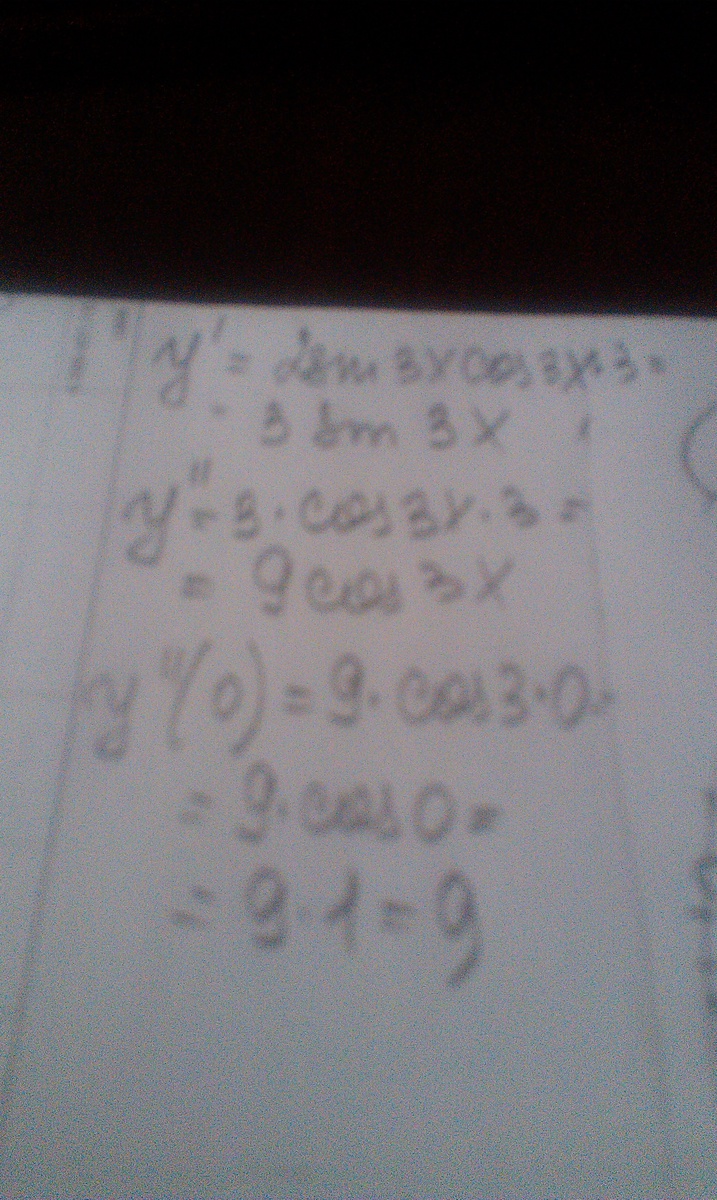 y' = 2sin 3x cos 3x·3 =
- 3 sin 3x
y'' = 3·cos 3x·3 =
= 9 cos 3x
y''(0) = 9·cos 3·0 =
= 9·cos 0 =
= 9·1 = 9